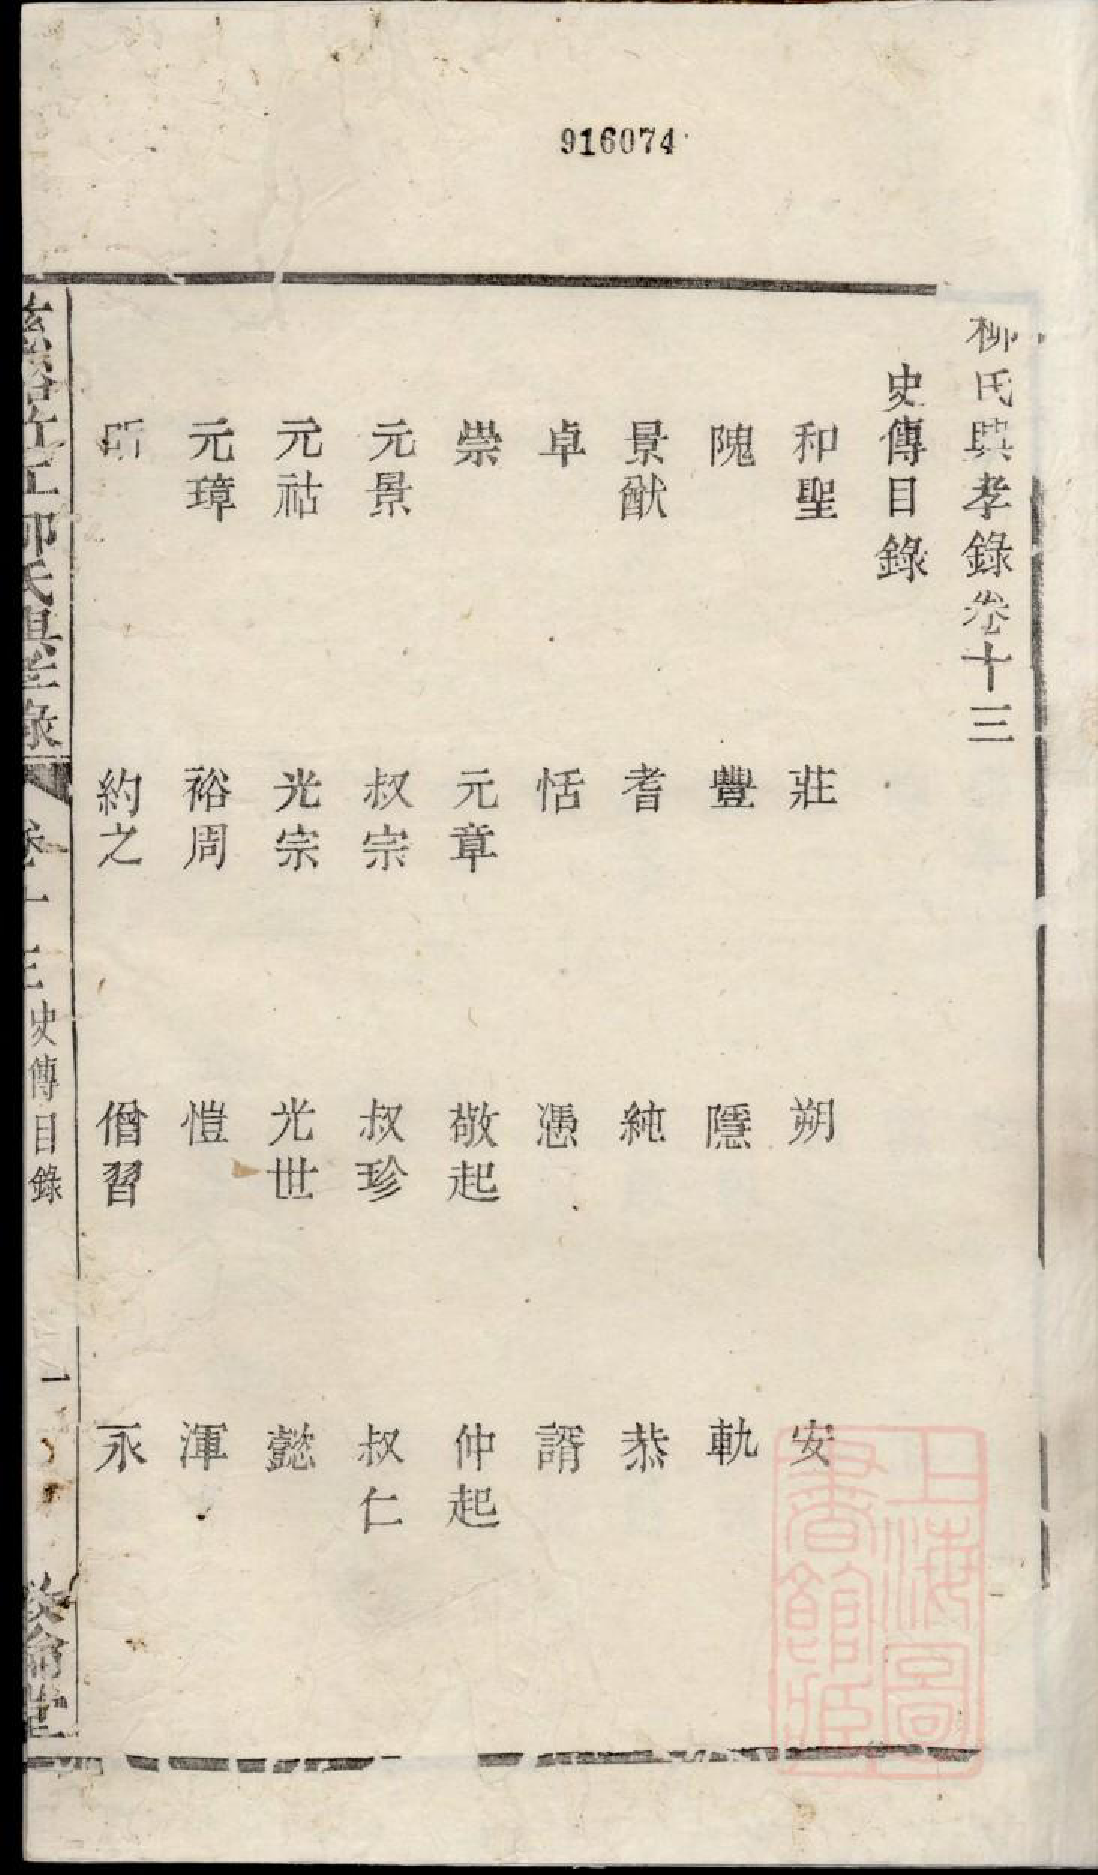 916074
柳氏興孝錄卷十三
史傳目錄
和聖 莊 朔 安
隗 豐 隱 軌
景猷 耆 純 恭
卓 恬 憑 諝
崇 元章 敬起 仲起
元景 叔宗 叔珍 叔仁
元祜 光宗 光世 懿
元璋 裕周 愷 渾
約之 僧習 永
慈谿 柳氏興孝錄 卷十三 史傳目錄 一 敦倫堂
上海圖書館藏